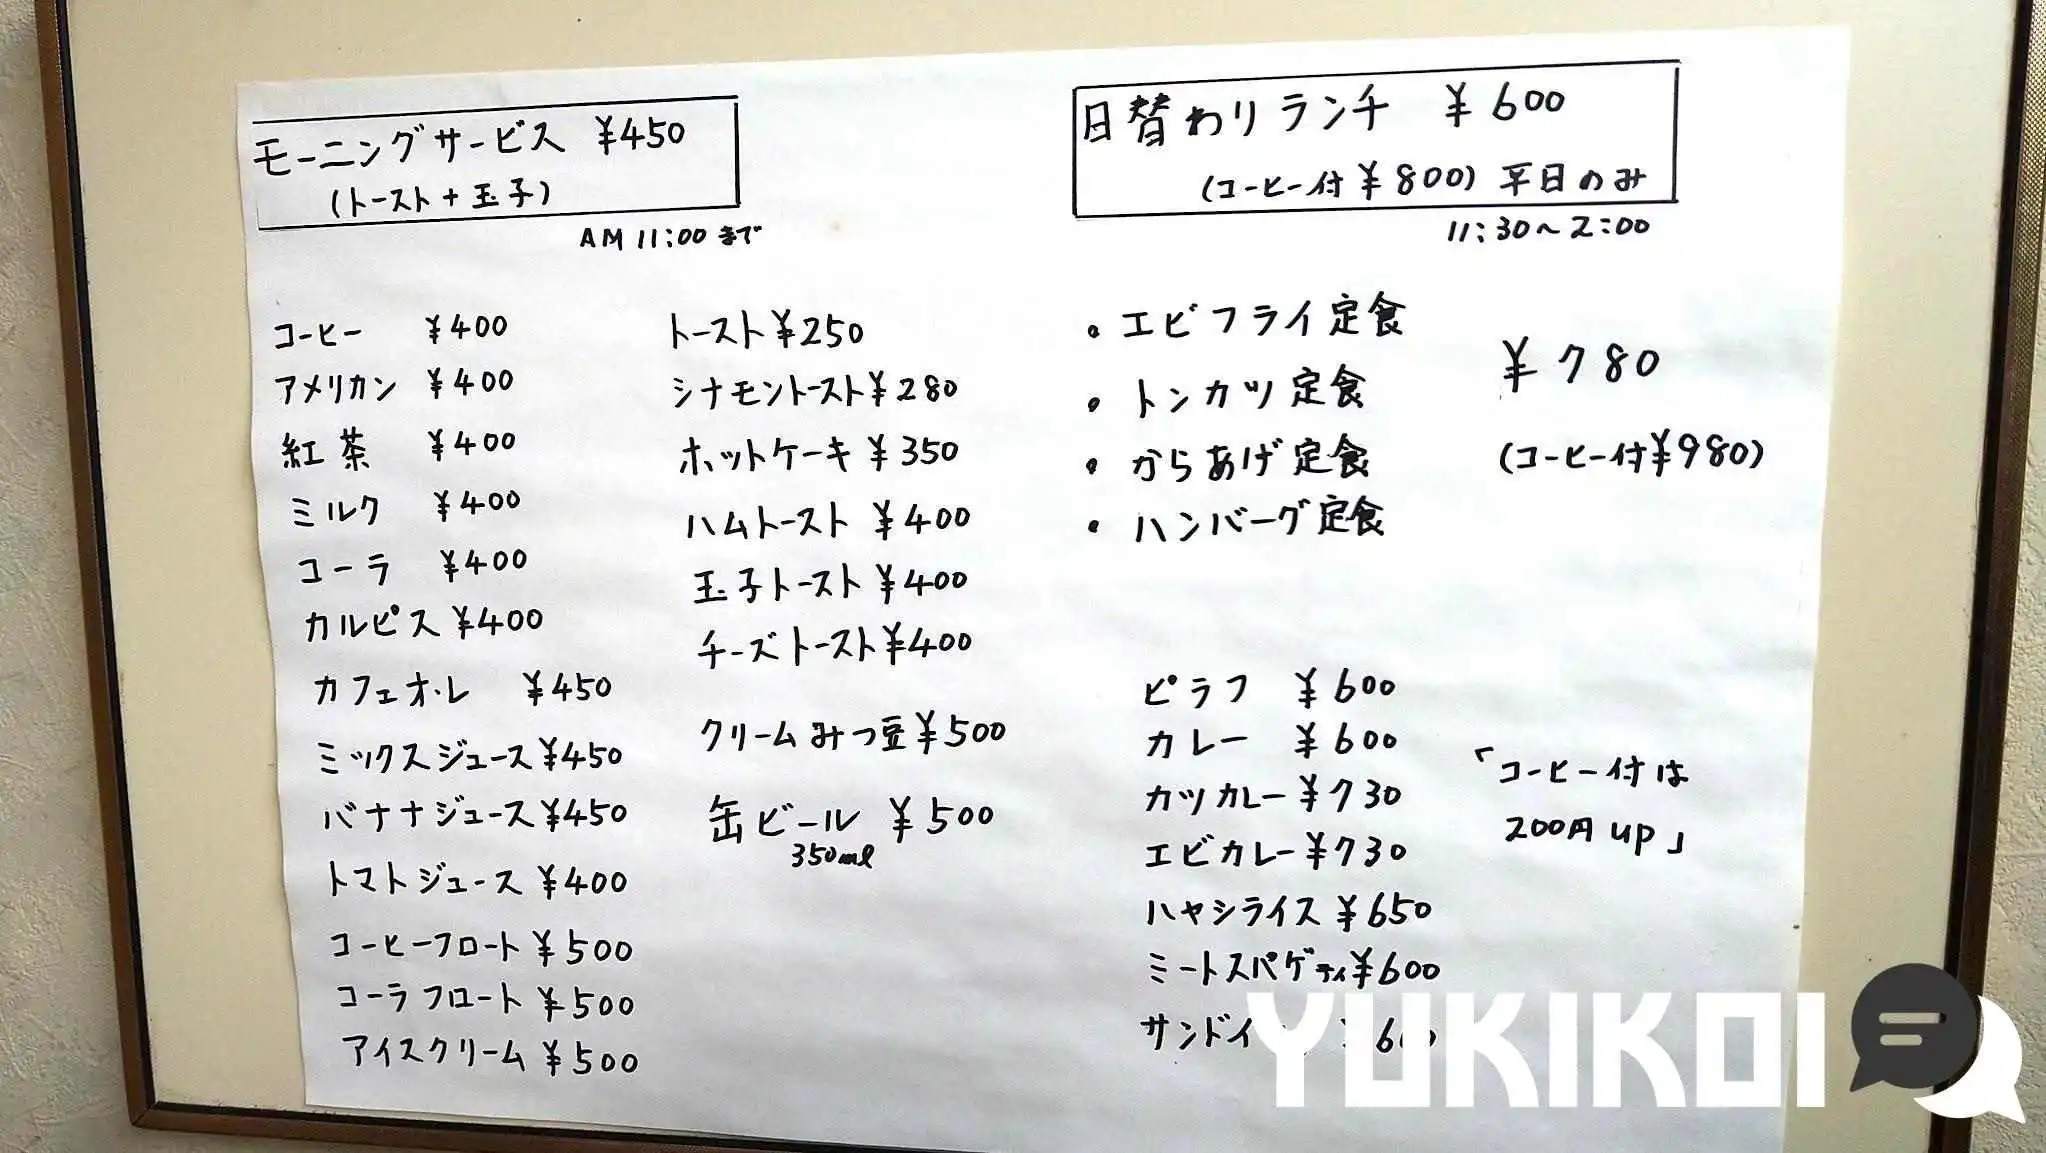 モーニングサービス ¥450
(トースト+玉子)
AM 11:00 まで
コーヒー ¥400
アメリカン ¥400
紅茶 ¥400
ミルク ¥400
コーラ ¥400
カルピス ¥400
カフェオ・レ ¥450
ミックスジュース ¥450
バナナジュース ¥450
トマトジュース ¥400
コーヒーフロート ¥500
コーラフロート ¥500
アイスクリーム ¥500
トースト ¥250
シナモントースト ¥280
ホットケーキ ¥350
ハムトースト ¥400
玉子トースト ¥400
チーズトースト ¥400
クリームみつ豆 ¥500
缶ビール ¥500
350ml
日替わりランチ ¥600
(コーヒー付 ¥800) 平日のみ
11:30~2:00
• エビフライ定食
• トンカツ定食
• からあげ定食
• ハンバーグ定食
¥780
(コーヒー付 ¥980)
ピラフ ¥600
カレー ¥600
カツカレー ¥730
エビカレー ¥730
ハヤシライス ¥650
ミートスパゲティ ¥600
「コーヒー付は
200円up」
YUKIKOI